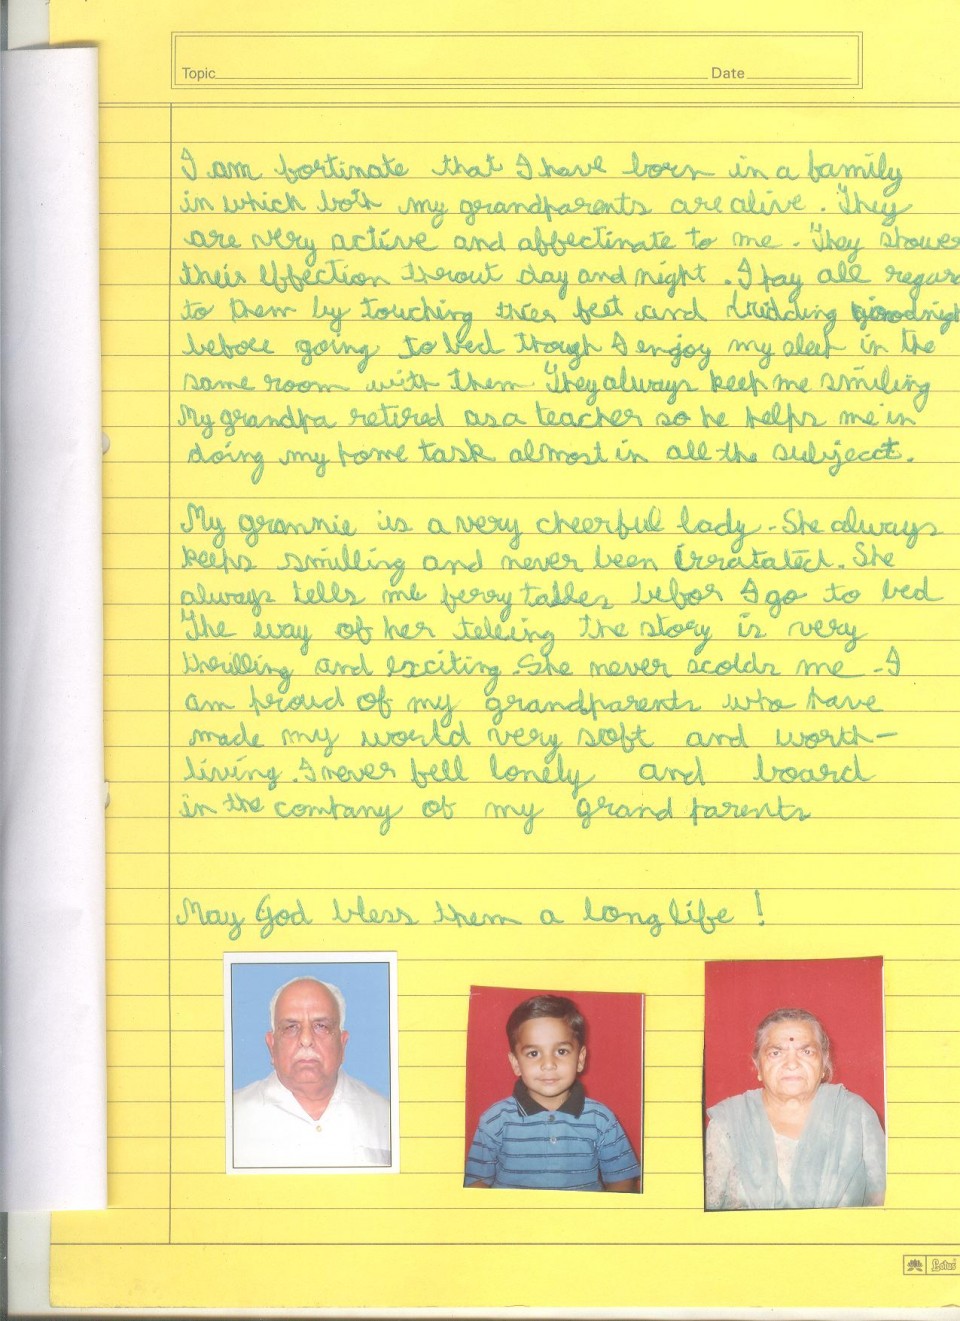 Topic Date
I am fortinate that I have born in a family
in which both my grandparents are alive. They
are very active and affectinate to me. They shower
their Effection throut day and night. I pay all regar
to them by touching thier feet and bidding goodnigh
before going to bed though I enjoy my sleep in the
same room with them They always keep me smiling
My grandpa retired as a teacher so he helps me in
doing my home task almost in all the subject.
My grannie is a very cheerful lady. She always
keeps smilling and never been irratated. She
always tells me ferry talles befor I go to bed
The way of her telling the story is very
thrilling and exciting. She never scolds me. I
am proud of my grandparents who have
made my world very soft and worth-
living. I never fell lonely and board
in the company of my grand parents
May God bless them a long life!
Lotus